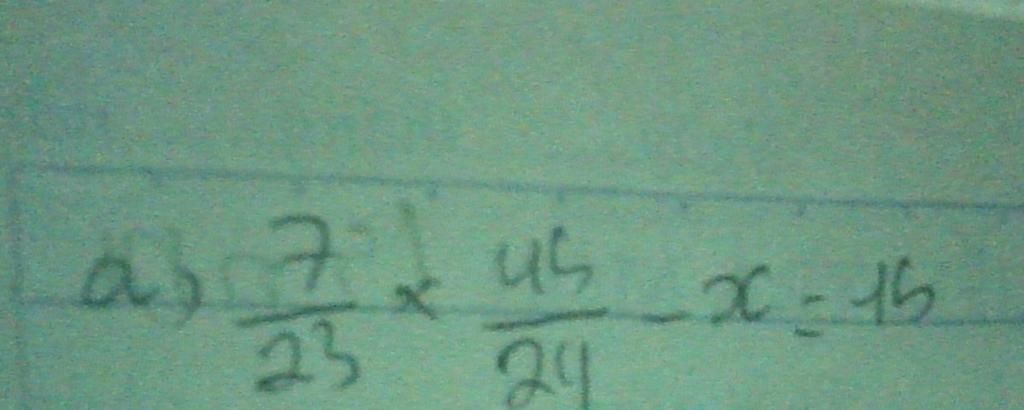 a) 7/23 × 45/24 - x = 15